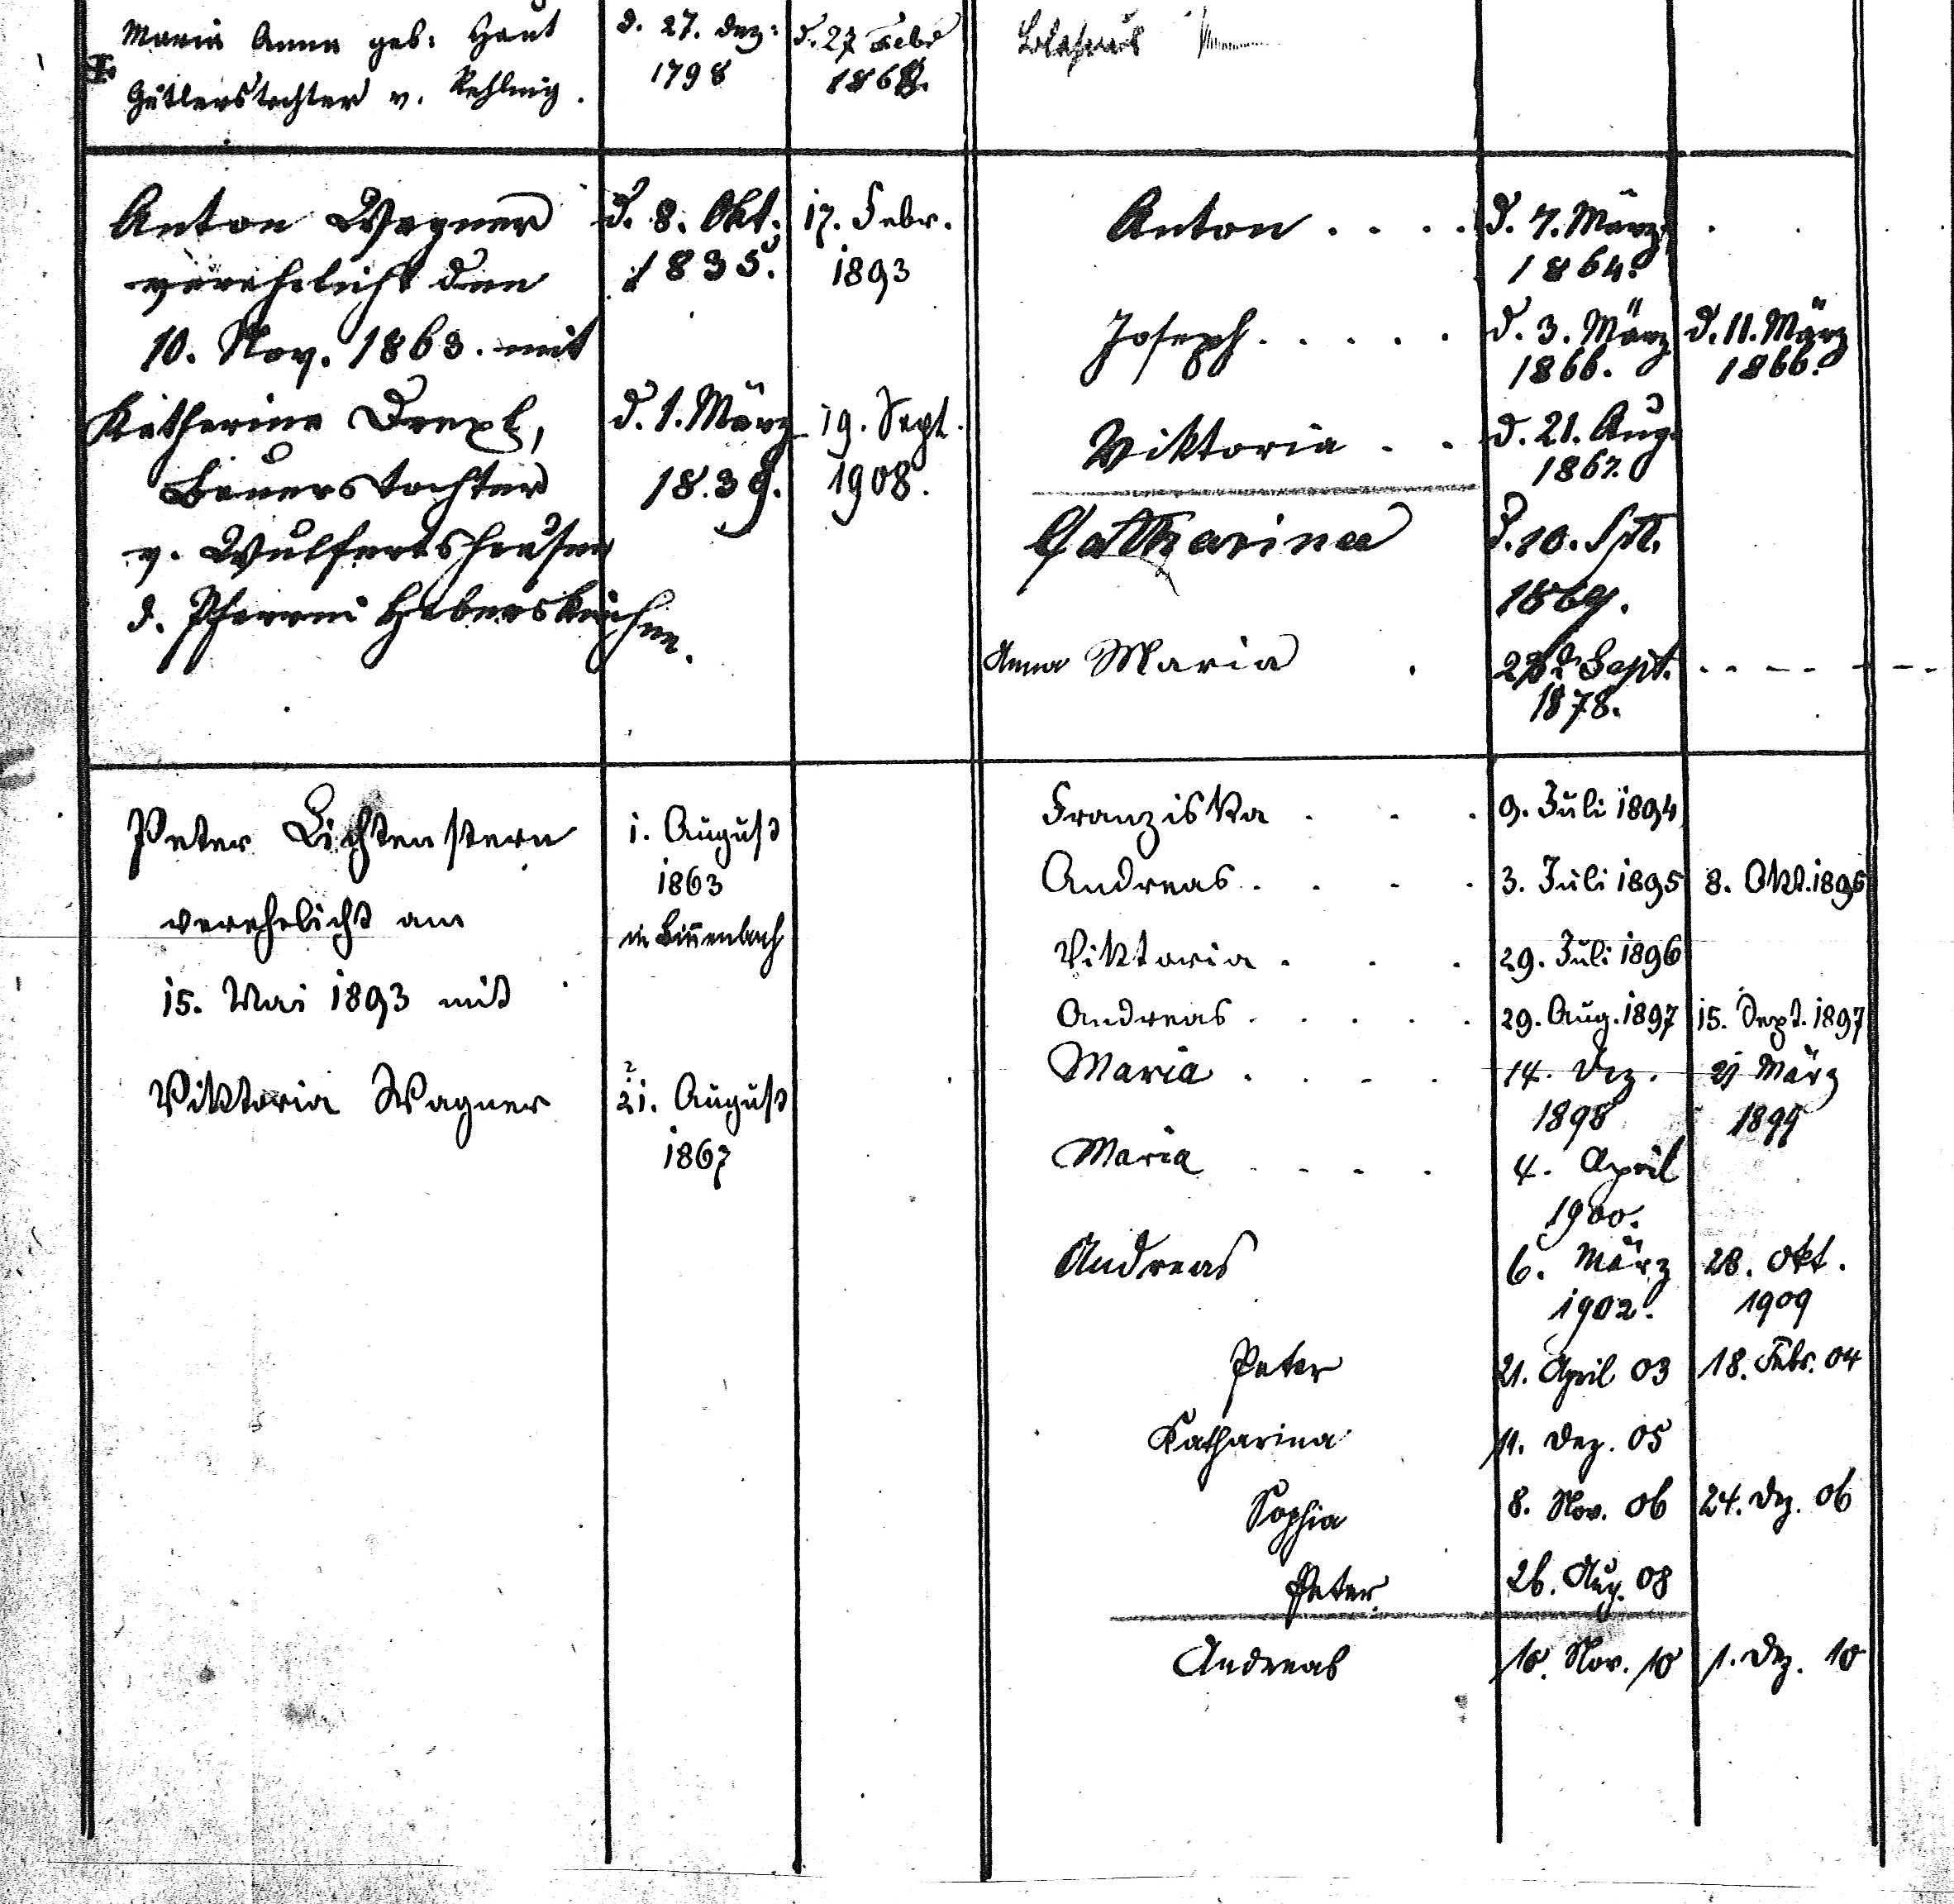 Maria Anna geb: Haut
Gütlerstochter v. Rehling.
d. 27. Dez:
1798
d. 27 Febr
1868.
Anton Wagner
verehelicht den
10. Nov. 1863. mit
Katharina Drexl,
Bauerstochter
v. Wulfertshausen
d. Pfarrei Haberskirchen.
d. 8. Okt.
1835.
d. 1. März
1839.
17. Febr.
1893
19. Sept.
1908.
Anton . . . .
d. 7. März
1864.
Joseph . . . . .
d. 3. März
1866.
d. 11. März
1866.
Viktoria . .
d. 21. Aug.
1867.
Catharina
d. 10. Spt.
1869.
Anna Maria .
Sept.
1878.
Peter Lichtenstern
verehelicht am
15. Mai 1893 mit
Viktoria Wagner
1. August
1863
in Binnenbach
21. August
1867
Franziska . . . 9. Juli 1894
Andreas . . . . 3. Juli 1895 8. Okt. 1895
Viktoria . . . 29. Juli 1896
Andreas . . . . . 29. Aug. 1897 15. Sept. 1897
Maria . . . . 14. Dez. 21 März
1898 1899
Maria . . . . 4. April
1900.
Andreas 6. März 28. Okt.
1902. 1909
Peter 21. April 03 18. Febr. 04
Katharina 11. Dez. 05
Sophia 8. Nov. 06 24. Dez. 06
Peter. 26. Aug. 08
Andreas 10. Nov. 10 1. Dez. 10